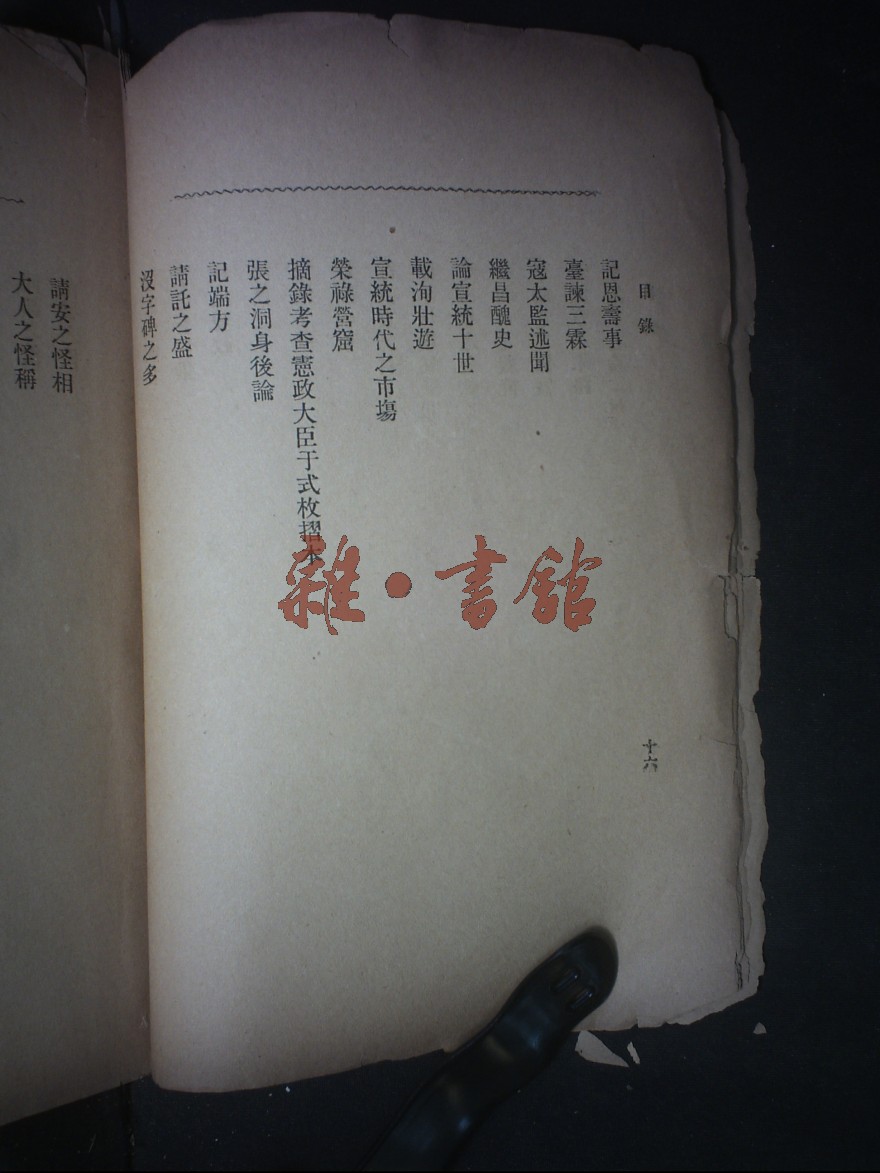 目錄
記恩壽事
臺諫三霖
寇太監述聞
繼昌醜史
論宣統十世
載洵壯遊
宣統時代之市塲
榮祿營窟
摘錄考查憲政大臣于式枚摺本
張之洞身後論
記端方
請託之盛
沒字碑之多
十六
請安之怪相
大人之怪稱
雜·書館